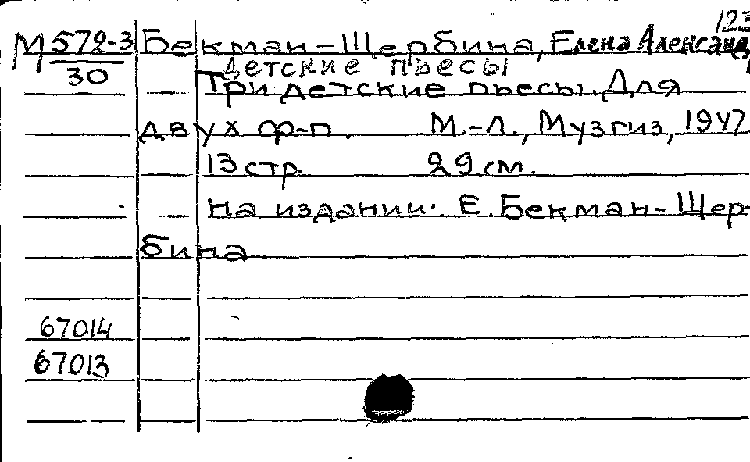 123
М 572-3 Бекман-Щербина, Елена Александр
30 Детские пьесы
Три детские пьесы. Для
двух ф-п. М.-Л., Музгиз, 1947
13 стр. 29 см.
На издании: Е. Бекман-Щер-
бина
67014
67013